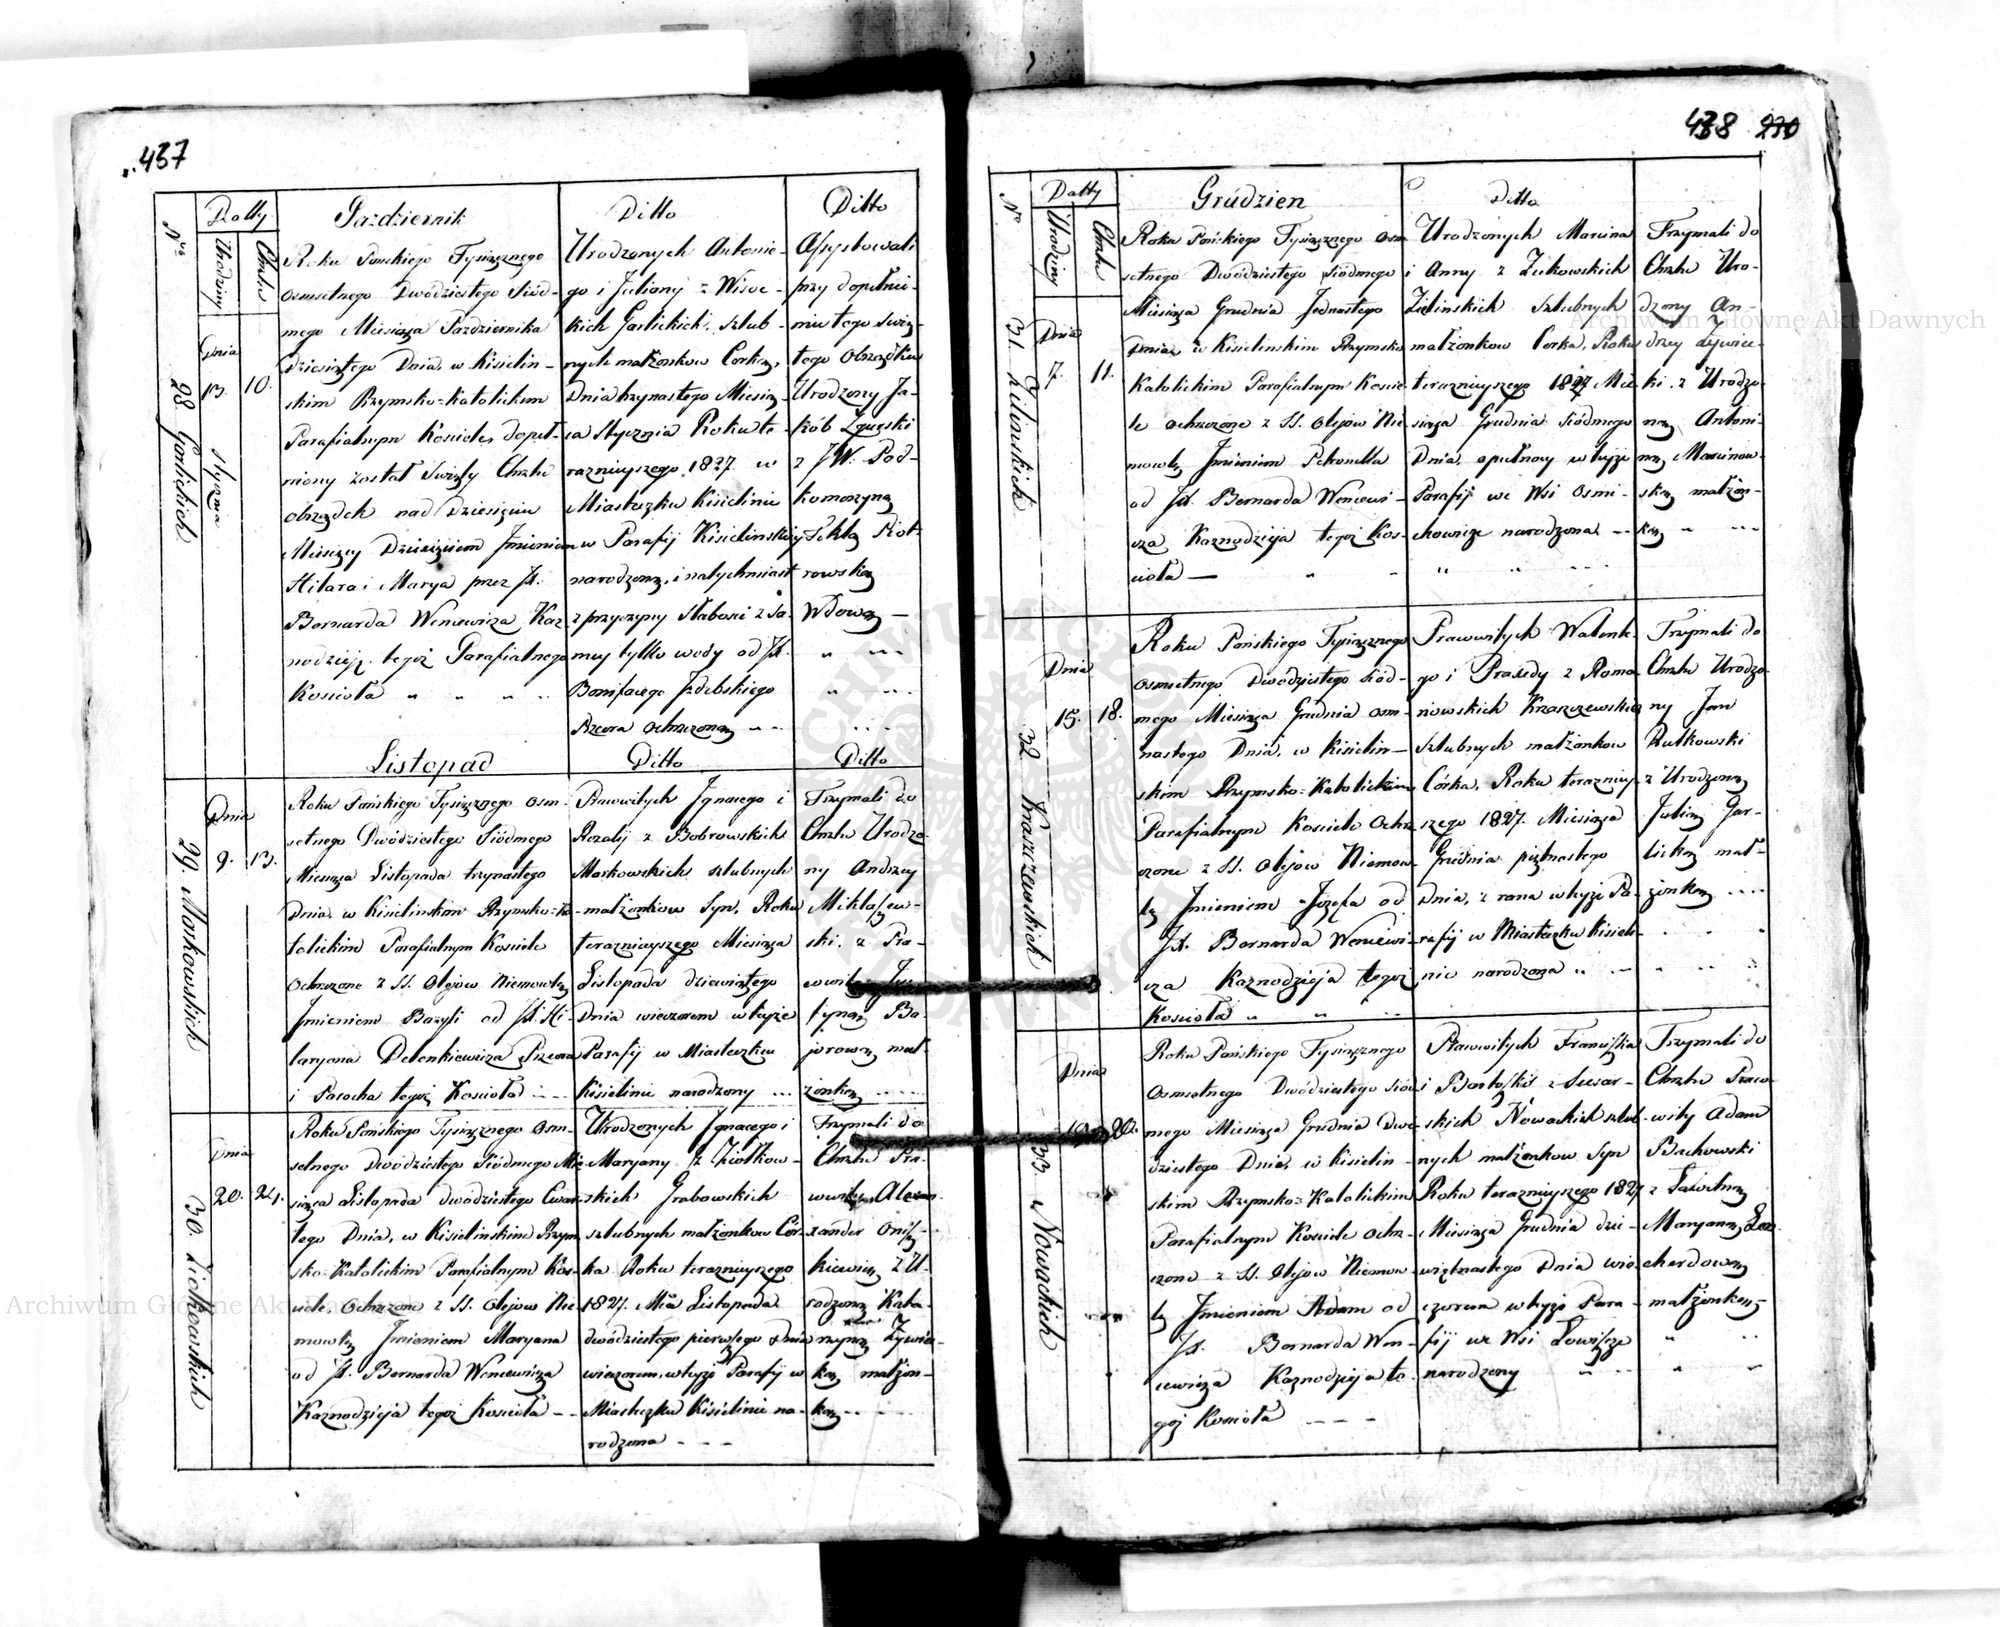 437
Nro
Datty
Urodziny
Chrztu
Pazdziernik
Ditto
Ditto
Dnia
13.
10.
Stycznia
28. Garlickich
Roku Panskiego Tysiącznego
osmsetnego Dwódziestego Siód-
mego Miesiąca Pazdziernika
Dziesiątego Dnia, w Kisielin-
skim Rzymsko=Katolickim
Parafialnym Kosciele, dopeł-
niony został Swięty Chrztu
obrządek nad Dziesięciu
Miesięcy Dziecięciem Jmieniem
Hilara i Marya przez Jx.
Bernarda Wencewicza Kaz-
nodzieję tegoż Parafialnego
Koscioła
Urodzonych Antonie-
go i Juliany z Wisoc-
kich Garlickich, szlub-
nych małżonkow Corka,
Dnia trzynastego Miesią-
ca Stycznia Roku te-
razniejszego 1827 w
Miasteczku Kisielinie
w Parafij Kisielinskiey
narodzona, i natychmiast
z przyczyny Słabosci z Sa-
mey tylko wody od Jx.
Bonifacego Jzdebskiego
Przeora ochrzczona
Assystowali
przy dopełnie-
niu tego Swię-
tego Obrządku
Urodzony Ja-
kób Zguęski
z JW. Pod-
komorzyną
Teklą Piot-
rowską
Wdową
Listopad
Ditto
Ditto
Dnia
9.
13.
29. Markowskich
Roku Pańskiego Tysiącznego osm-
setnego Dwódziestego Siódmego
Miesiąca Listopada trzynastego
Dnia, w Kisielinskim Rzymsko=Ka-
tolickim Parafialnym Kosciele
Ochrzczone z SS. Olejow Niemowlę
Jmieniem Bazyli od Jx. Hi-
laryona Delenkiewicza Przeora
i Parocha tegoż Kosciola
Prawowitych Jgnacego i
Rozalij z Bobrowskich
Markowskich szlubnych
małzonkow Syn, Roku
terazniejszego Miesiąca
Listopada dziewiątego
Dnia wieczorem w teyże
Parafij w Miasteczku
Kisielinie narodzony
Trzymali do
Chrztu Urodzo-
ny Andrzey
Mikłaszew-
ski. z Pra-
wowitą Ju-
tyną Ba-
jorową mał-
żonką
Dnia
20.
24.
30. Ziołkowskich
Roku Pańskiego Tysiącznego Osm-
setnego Dwódziestego Siódmego Mie-
siąca Listopada dwódziestego Czwar-
tego Dnia, w Kisielinskim Rzym-
sko=Katolickim Parafialnym Kos-
ciele, Ochrzczone z SS. Olejow Nie-
mowlę Jmieniem Maryana
od Jx. Bernarda Wencewicza
Kaznodzieja tegoż Kosciola
Urodzonych Jgnacego i
Maryany z Ziołkow-
skich Grabowskich
szlubnych małzonkow Cór-
ka Roku terazniejszego
1827. Mca Listopada
dwódziestego pierwszego Dnia
wieczorem, w teyże Parafij w
Miasteczku Kisielinie na-
rodzona
Trzymali do
Chrztu Pra-
wowity Alexan-
zander Onisz-
kiewicz z U-
rodzoną Kata-
rzyną Zywic-
ką małżon-
ką
438
230
Nro
Datty
Urodziny
Chrztu
Grúdzien
Ditto
Dnia
7.
11.
31. Zilinskich
Roku Pańskiego Tysiącznego Osm-
setnego Dwódziestego Siódmego
Miesiąca Grudnia Jednastego
Dnia w Kisielinskim Rzymsko
Katolickim Parafialnym Koscie-
le ochrzczone z SS. Olejow Nie-
mowlę Jmieniem Petronella
od Jx. Bernarda Wencewi-
cza Kaznodzieja tegoż Kos-
cioła
Urodzonych Marcina
i Anny z Zukowskich
Zilinskich Szlubnych
małżonkow Corka, Roku
terazniejszego 1827 Mie-
siąca Grudnia Siódmego
Dnia, o pułnocy w teyże
Parafij we Wsi Osmi-
chowicze narodzona
Trzymali do
Chrztu Uro-
dzony An-
drzey Zywic-
ki. z Urodzo-
ną Antoni-
ną Marcinow-
ską małżon-
ką
Dnia
15.
18.
32 Kraszewskich
Roku Pańskiego Tysiącznego
osmsetnego Dwódziestego Siód-
mego Miesiąca Grudnia osm-
nastego Dnia, w Kisielin-
skim Rzymsko=Katolickim
Parafialnym Kosciele Ochrz-
czone z SS. Olejow Niemow-
lę Jmieniem Jozefa od
Jx. Bernarda Wencewi-
cza Kaznodzieja tegoż
Kosciola
Prawowitych Walente-
go i Praxedy z Roma-
nowskich Kraszewskich
Szlubnych małżonkow
Córka, Roku terazniey-
szego 1827. Miesiąca
Grudnia piętnastego
Dnia, z rana w teyże Pa-
rafij w Miasteczku Kisieli-
nie narodzona
Trzymali do
Chrztu Urodzo-
ny Jan
Rutkowski
z Urodzoną
Julią Gar-
licką mał-
żonką
Dnia
19.
20.
33 Nowackich
Roku Pańskiego Tysiącznego
Osmsetnego Dwódziestego Siód-
mego Miesiąca Grudnia Dwó-
dziestego Dnia, w Kisielin-
skim Rzymsko=Katolickim
Parafialnym Kosciele Ochrz-
czone z SS. Olejow Niemow-
lę Jmieniem Adam od
Jx. Bernarda Wen-
cewicza Kaznodzieja te-
goż Kosciola
Prawowitych Franciszka
i z Slesar-
skich Nowackich szlub-
nych małżonkow Syn
Roku terazniejszego 1827
Miesiąca Grudnia dzie-
więtnastego Dnia wie-
czorem w teyże Para-
fij we Wsi Łowiszcze
narodzony
Trzymali do
Chrztu Prawo-
wity Adam
Bachowski
z Sławetną
Maryanną
cherdową
małżonką
Archiwum Główne Akt Dawnych
Archiwum Główne Akt Dawnych